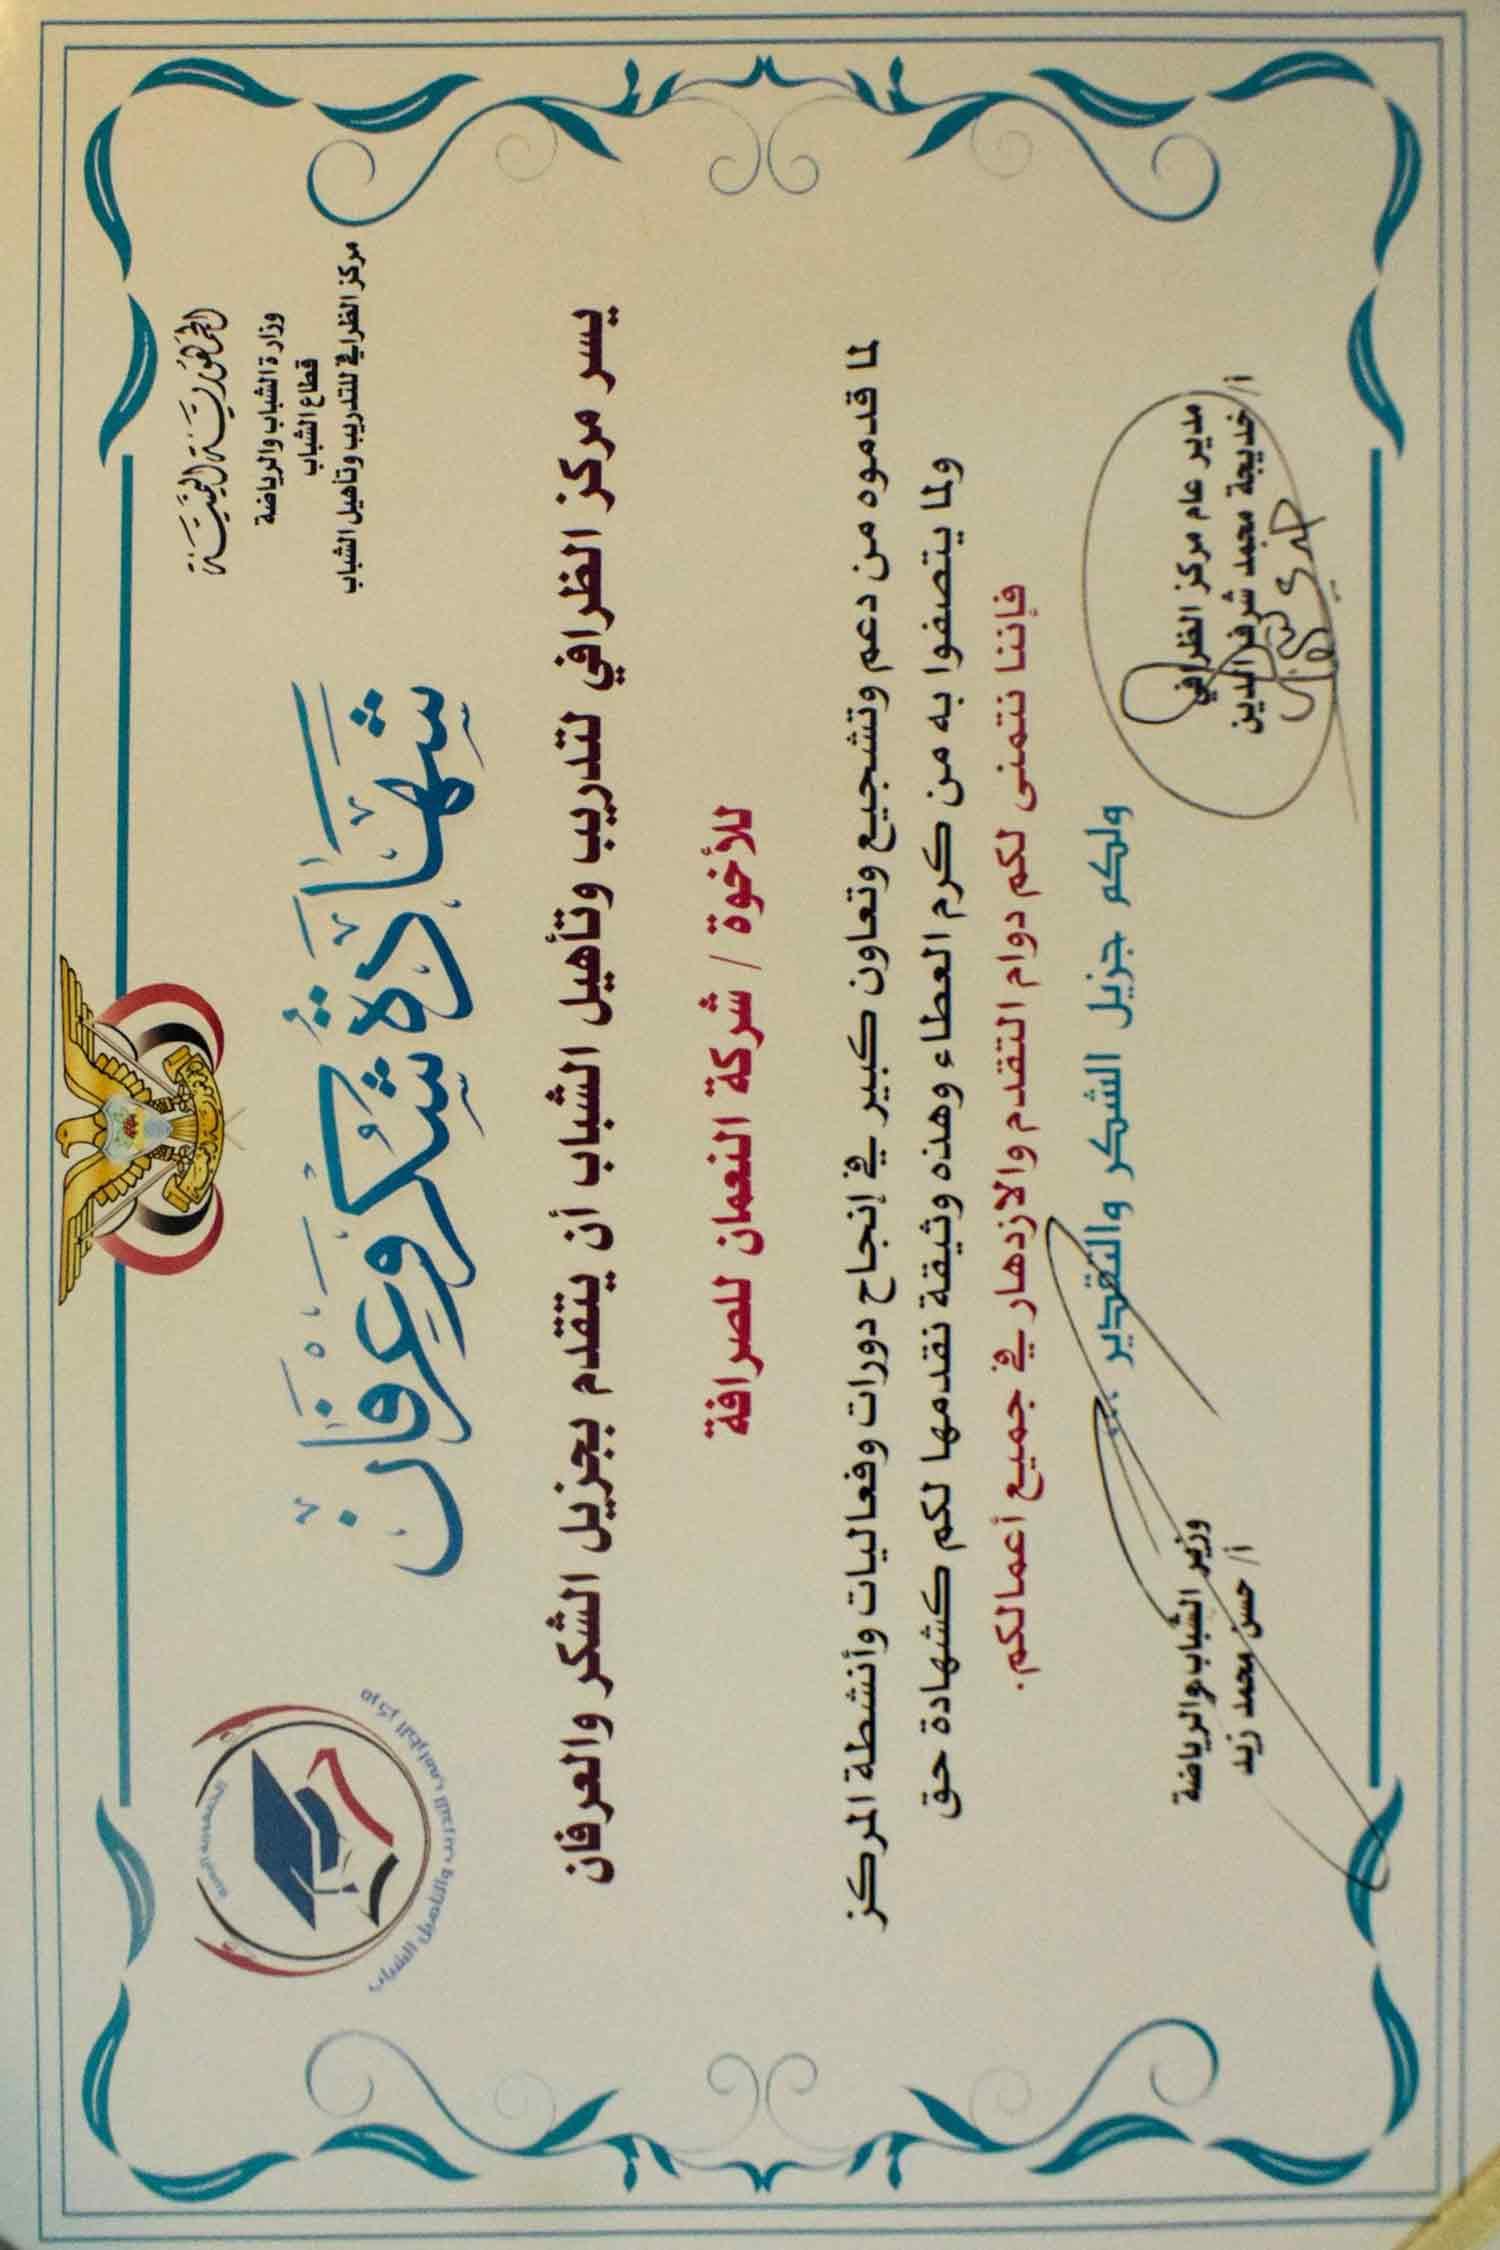 الجمهورية اليمنية
وزارة الشباب والرياضة
قطاع الشباب
مركز الظرافي للتدريب وتأهيل الشباب
الجمهورية اليمنية
شهادة شكر وعرفان
يسر مركز الظرافي لتدريب وتأهيل الشباب أن يتقدم بجزيل الشكر والعرفان
للأخوة / شركة النعمان للصرافة
لما قدموه من دعم وتشجيع وتعاون كبير في إنجاح دورات وفعاليات وأنشطة المركز
ولما يتصفوا به من كرم العطاء وهذه وثيقة نقدمها لكم كشهادة حق
فإننا نتمنى لكم دوام التقدم والازدهار في جميع أعمالكم.
ولكم جزيل الشكر والتقدير ....
مدير عام مركز الظرافي
أ/ خديجة محمد شرف الدين
وزير الشباب والرياضة
أ/ حسن محمد زيد